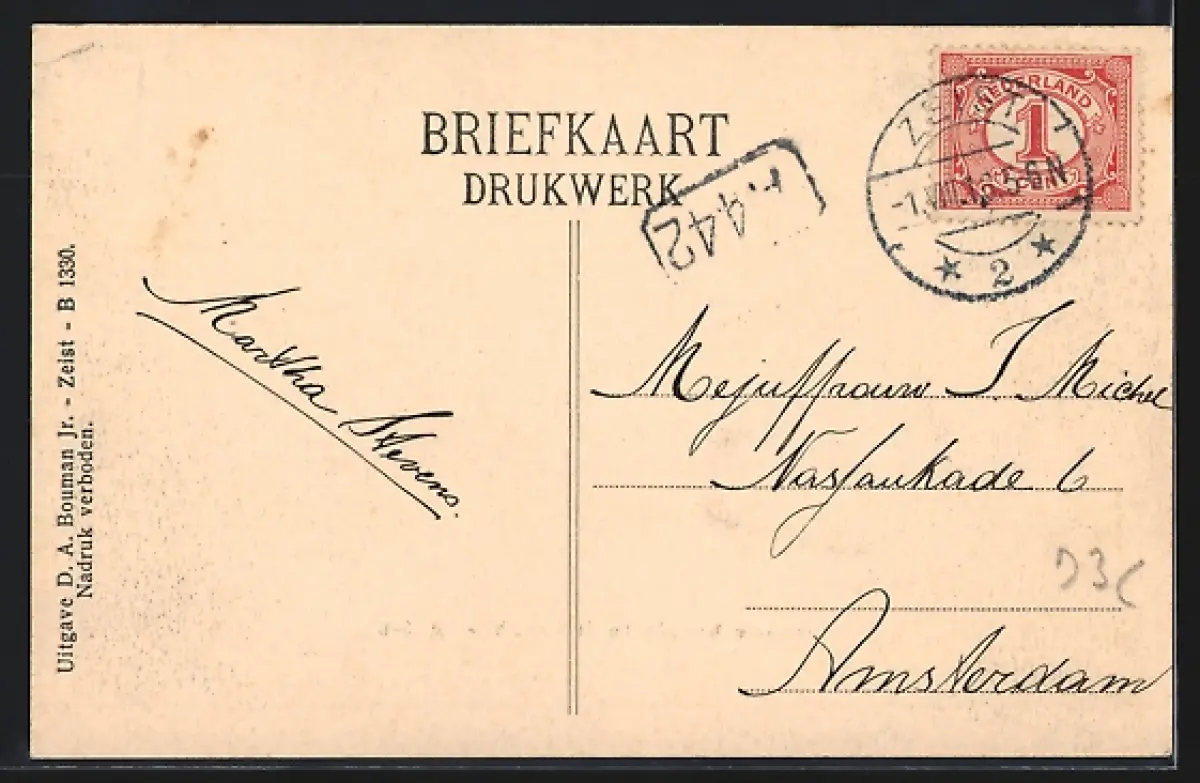 BRIEFKAART
DRUKWERK
NEDERLAND
1
CENT
ZEIST
5-6N
2
r.442
Martha Stevens.
Mejuffrouw J. Michel
Nassaukade 6
Amsterdam
Uitgave D. A. Bouman Jr. - Zeist - B 1330.
Nadruk verboden.